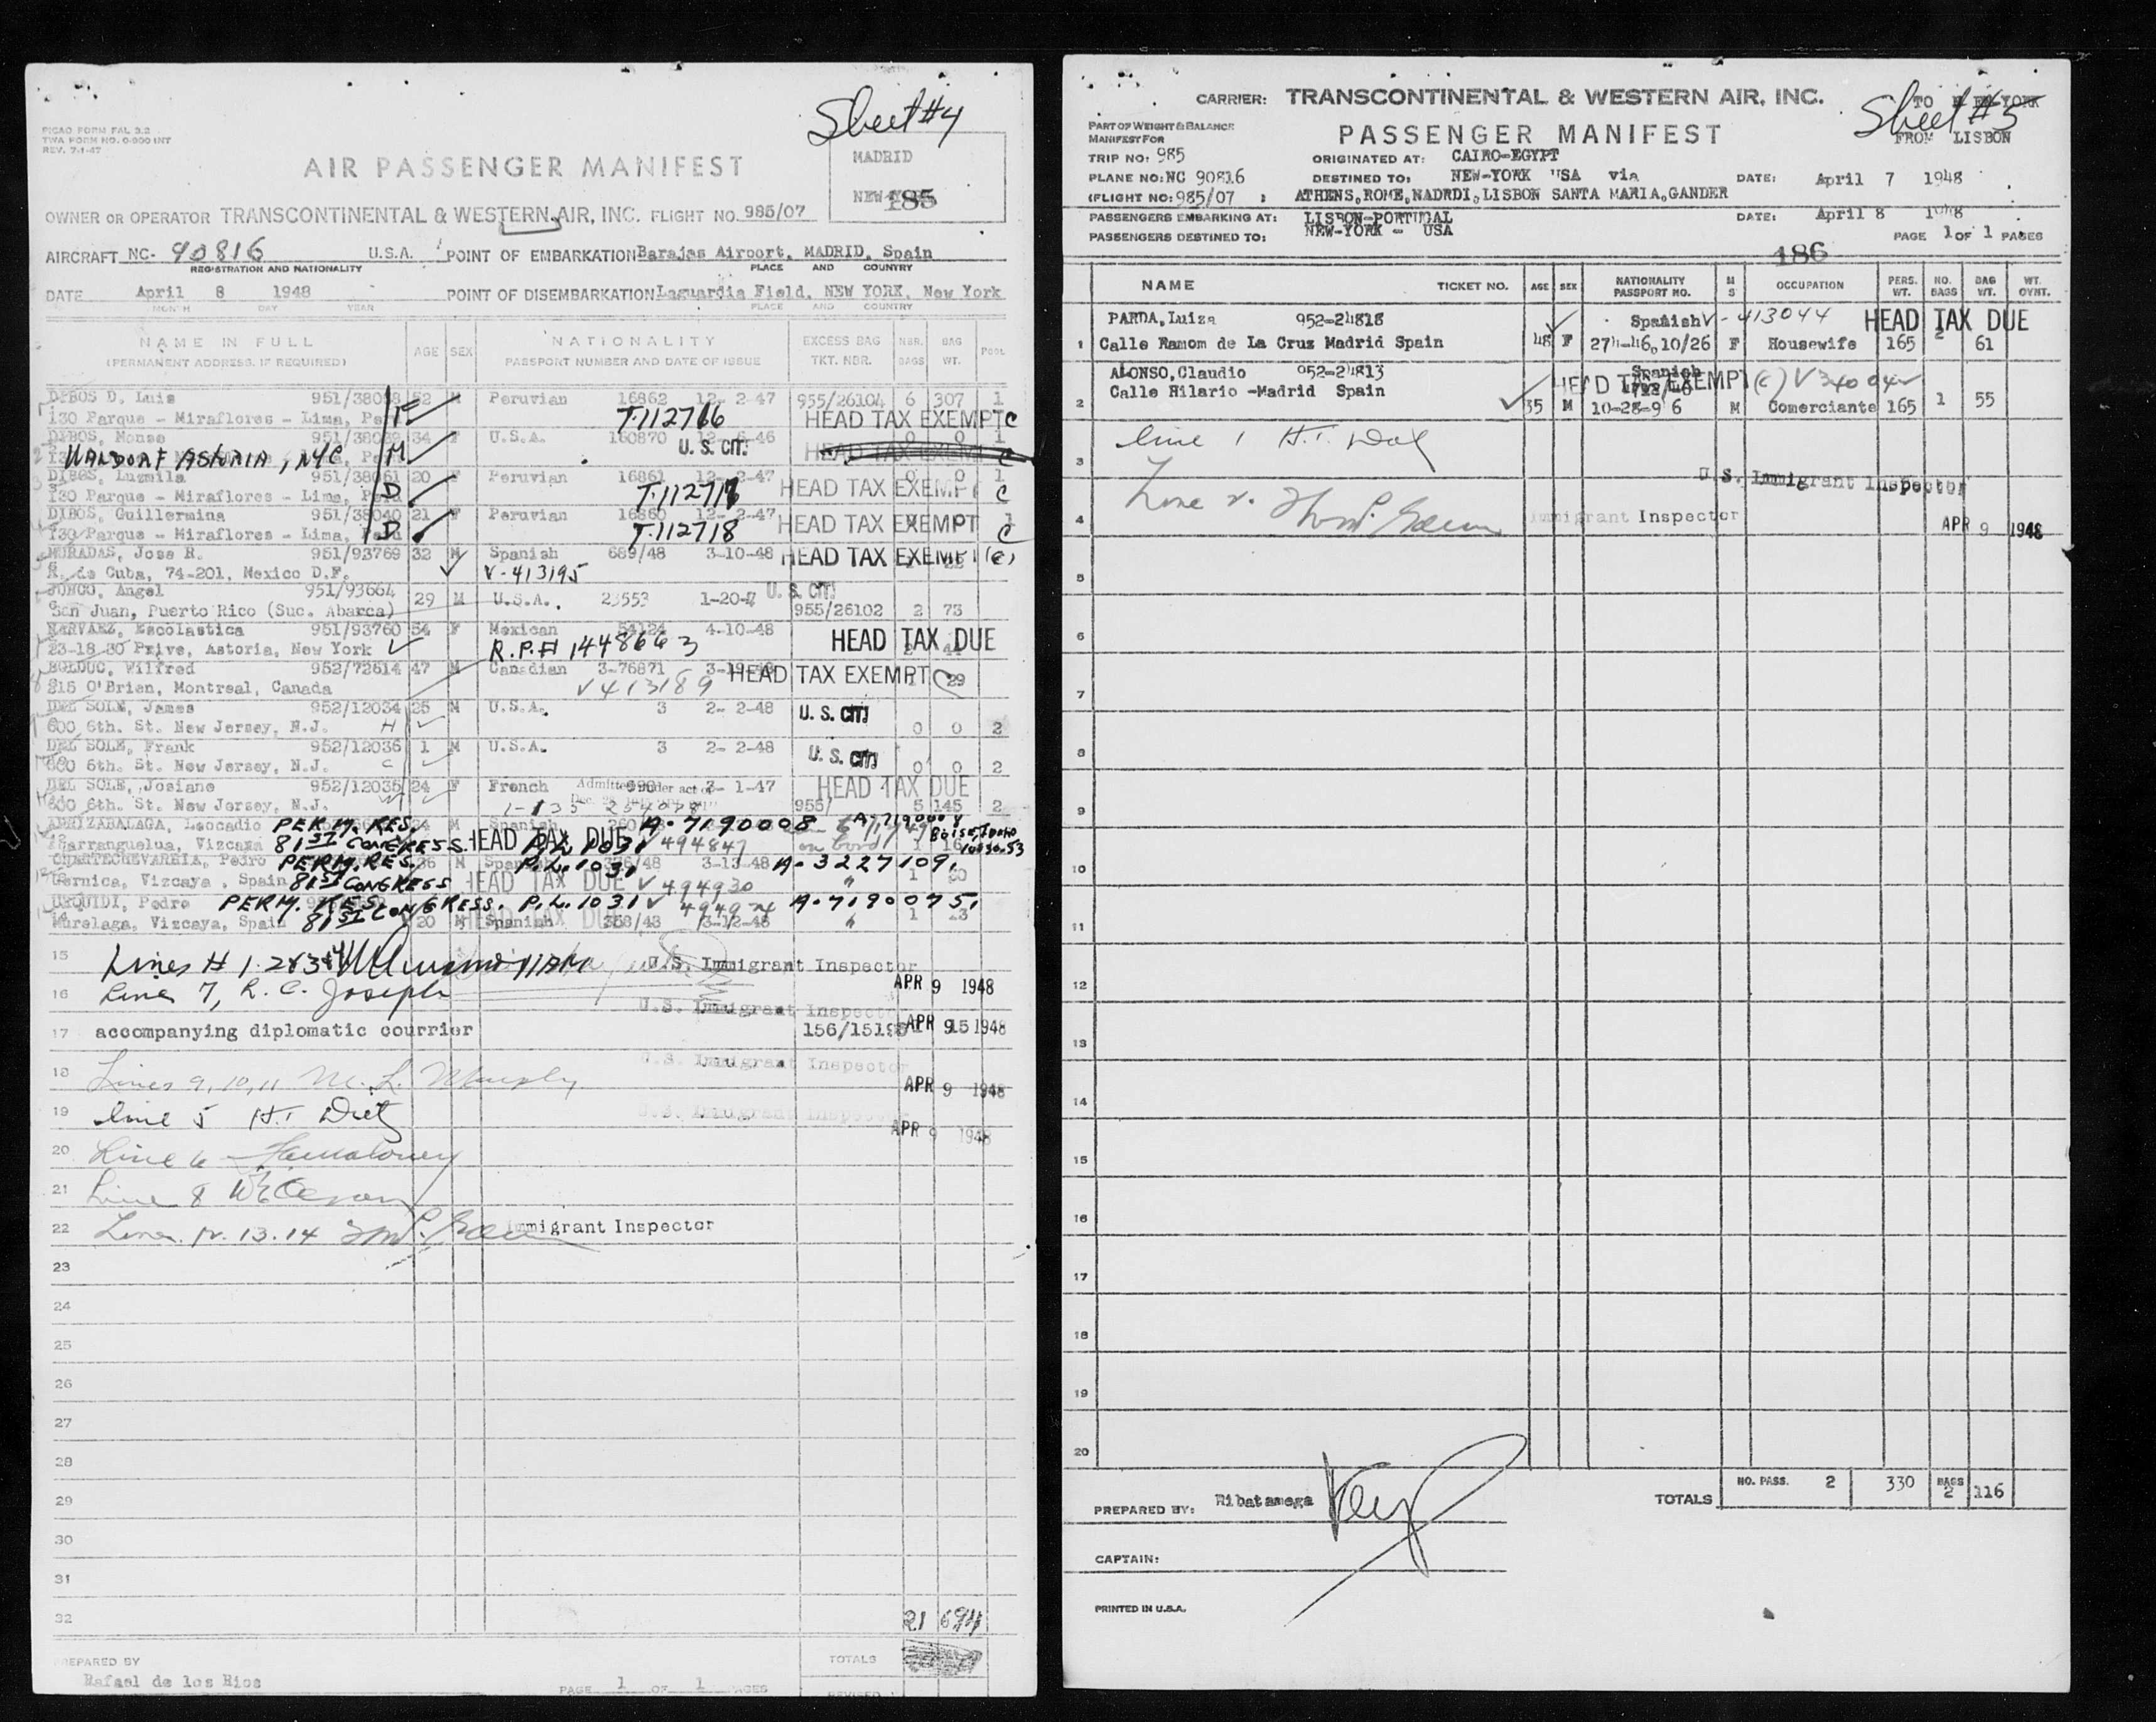 Sheet #4
PICAO FORM FAL 3.2
TWA FORM NO. 0-900 INT
REV. 7-1-47
AIR PASSENGER MANIFEST
MADRID
NEW
185
OWNER OR OPERATOR TRANSCONTINENTAL & WESTERN AIR, INC. FLIGHT NO. 985/07
AIRCRAFT NC- 90816 U.S.A. POINT OF EMBARKATION Barajas Airport, MADRID, Spain
REGISTRATION AND NATIONALITY PLACE AND COUNTRY
DATE April 8 1948 POINT OF DISEMBARKATION Laguardia Field, NEW YORK, New York
MONTH DAY YEAR PLACE AND COUNTRY
NAME IN FULL AGE SEX NATIONALITY EXCESS BAG NBR. BAG POOL
(PERMANENT ADDRESS, IF REQUIRED) PASSPORT NUMBER AND DATE OF ISSUE TKT. NBR. BAGS WT.
DIBOS D, Luis 951/38038 52 M Peruvian 16862 12- 2-47 955/26104 6 307 1
130 Parque - Miraflores - Lima, F T-112716 HEAD TAX EXEMPT C
DIBOS, 951/38039 34 F U.S.A. 160870 46 0 0 1
WALDORF ASTORIA, NYC M U.S. CIT. HEAD TAX EXEMPT C
DIBOS, Luzmila 951/38061 20 F Peruvian 16861 12-2-47 0 0 1
130 Parque - Miraflores - Lima, Peru D T-112717 HEAD TAX EXEMPT C
DIBOS, Guillermina 951/38040 21 F Peruvian 16860 12- 2-47 1
130 Parque - Miraflores - Lima, Peru D T-112718 HEAD TAX EXEMPT C
MURADAS, Jose R. 951/93769 32 M Spanish 689/48 3-10-48 HEAD TAX EXEMPT (C)
R. de Cuba, 74-201, Mexico D.F. V-413195
JUNCO, Angel 951/93664 29 M U.S.A. 23553 1-20-47 U.S. CIT.
San Juan, Puerto Rico (Suc. Abarca) 955/26102 2 73
NARVAEZ, Escolastica 951/93760 54 F Mexican 54124 4-10-48
23-18 30 Prive, Astoria, New York R.P.# 1448663 HEAD TAX DUE
BOLDUC, Wilfred 952/72614 47 M Canadian 3-76871 HEAD TAX EXEMPT C
215 O'Brien, Montreal, Canada V413189 29
DEL SOLE, James 952/12034 25 M U.S.A. 3 2- 2-48 U.S. CIT.
600 6th. St. New Jersey, N.J. H 0 0 2
DEL SOLE, Frank 952/12036 1 M U.S.A. 3 2- 2-48 U.S. CIT.
600 6th. St. New Jersey, N.J. C 0 0 2
DEL SOLE, Josiane 952/12035 24 F French Admitted under act of 1-47 HEAD TAX DUE
600 6th. St. New Jersey, N.J. 955/ 5 145 2
ARRIZABALAGA, Leocadio PERM. RES. A-7190008
Ibarranguelua, Vizcaya 81ST CONGRESS. HEAD TAX DUE P.L. 1031 V 494847 on bond Boise, Idaho
CHARTECHEVARRIA, Pedro PERM. RES. 36 M Span P.L. 1031 3-13-48 A-3227109.
Gernica, Vizcaya, Spain 81ST CONGRESS HEAD TAX DUE V 494930 " 1
URQUIDI, Pedro PERM. RES. P.L. 1031 V 494974 A-7190075.
Murelaga, Vizcaya, Spain 81ST CONGRESS. 20 M Spanish 358/48 3-12-48 " 1 23
15 Lines # 1-2&3&4 U.S. Immigrant Inspector
APR 9 1948
16 Line 7, R. C. Joseph U.S. Immigrant Inspector
17 accompanying diplomatic courrier 156/ APR 9 1948
18 Lines 9, 10, 11 M. L. Murphy U.S. Immigrant Inspector
APR 9 1948
19 Line 5 H.T. Dietz U.S. Immigrant Inspector
APR 9 1948
20 Line 6
21 Line 8
22 Line. 12. 13. 14 Immigrant Inspector
23
24
25
26
27
28
29
30
31
32 21 694
PREPARED BY TOTALS
Rafael de los Rios PAGE 1 OF 1 PAGES
CARRIER: TRANSCONTINENTAL & WESTERN AIR, INC. TO NEW YORK
Sheet #5
PART OF WEIGHT & BALANCE
MANIFEST FOR PASSENGER MANIFEST FROM LISBON
TRIP NO: 985 ORIGINATED AT: CAIRO-EGYPT
PLANE NO: NC 90816 DESTINED TO: NEW-YORK USA via DATE: April 7 1948
(FLIGHT NO: 985/07 : ATHENS,ROME,NADRDI,LISBON SANTA MARIA,GANDER
PASSENGERS EMBARKING AT: LISBON-PORTUGAL DATE: April 8 1948
PASSENGERS DESTINED TO: NEW-YORK - USA PAGE 1 OF 1 PAGES
186
NAME TICKET NO. AGE SEX NATIONALITY PASSPORT NO. M S OCCUPATION PERS. WT. NO. BAGS BAG WT. WT. OVNT.
PARDA, Luiza 952-24818 Spanish V-413044 HEAD TAX DUE
1 Calle Ramom de La Cruz Madrid Spain 48 F 274-46, 10/26 F Housewife 165 2 61
ALONSO, Claudio 952-24813 Spanish HEAD TAX EXEMPT (C)
Calle Hilario -Madrid Spain
2 35 M 10-28-9 6 M Comerciante 165 1 55
Line 1 H.T.
3 U.S. Immigrant Inspector
Line 2.
4 Immigrant Inspector APR 9 1948
5
6
7
8
9
10
11
12
13
14
15
16
17
18
19
20
TOTALS NO. PASS. 2 330 BAGS 2 116
PREPARED BY: Ribatamega
CAPTAIN:
PRINTED IN U.S.A.